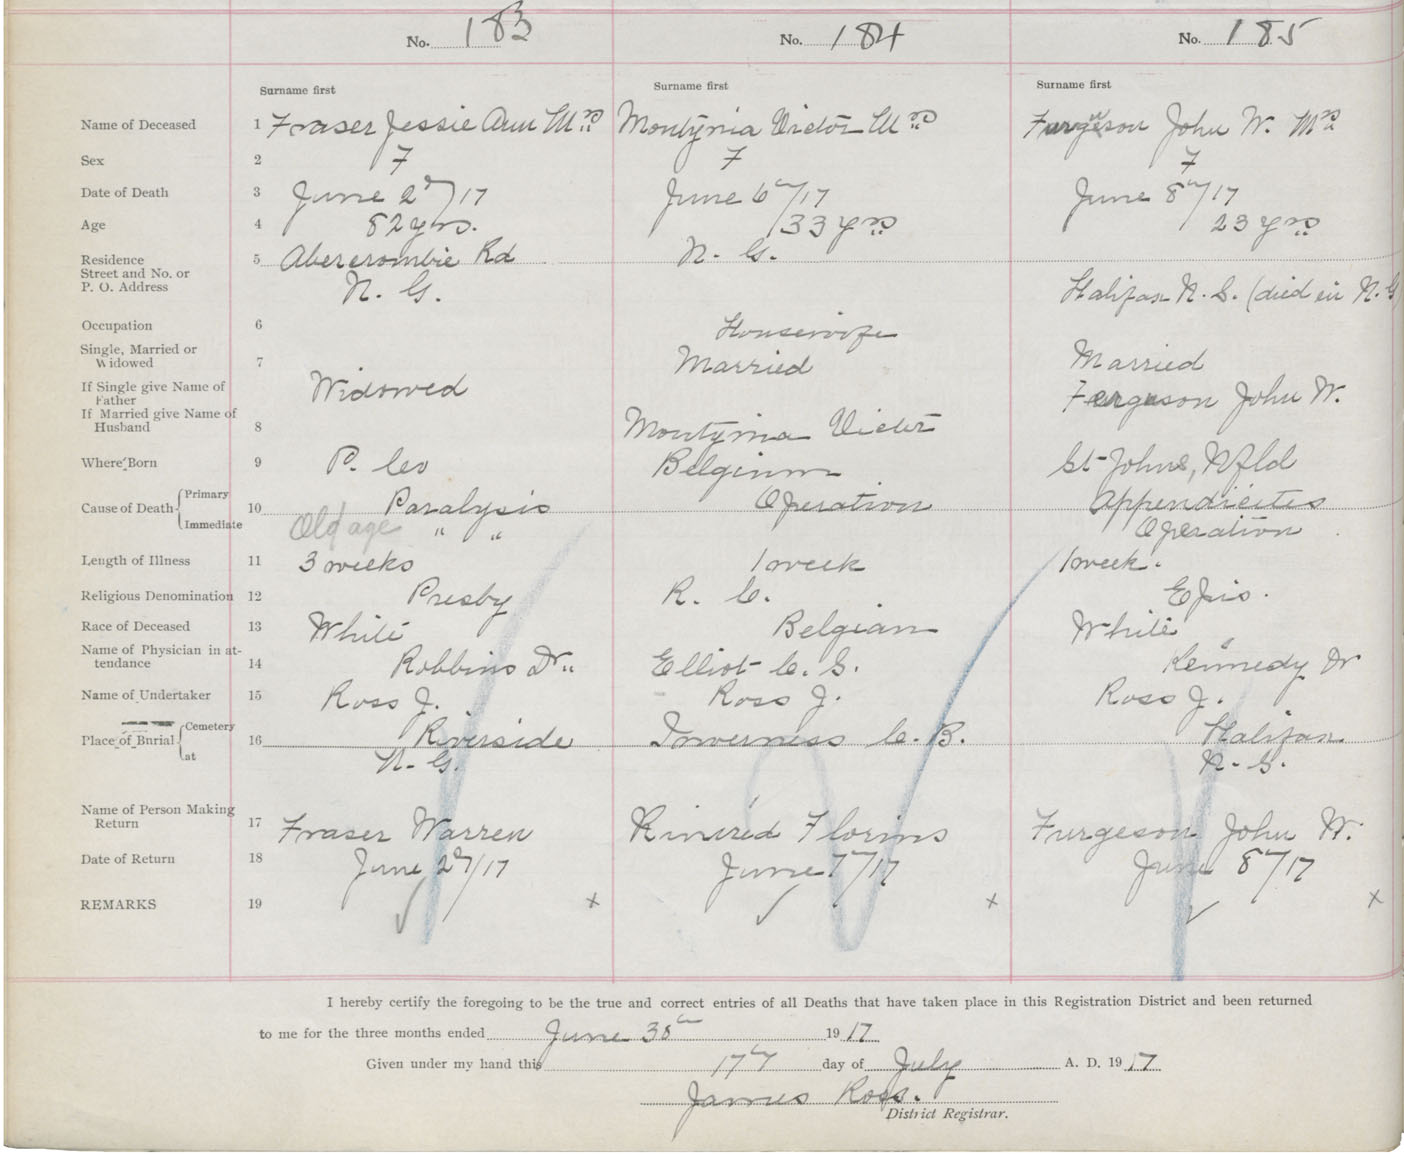 No. 183
No. 184
No. 185
Surname first
Surname first
Surname first
Name of Deceased 1 Fraser Jessie Ann Mrs Montynia Victor Mrs Furgeson John W. Mrs
Sex 2 F F F
Date of Death 3 June 2d/17 June 6th/17 June 8th/17
Age 4 82 yrs. 33 yrs 23 yrs
Residence 5 Abercrombie Rd N. G.
Street and No. or
P. O. Address N. G. Halifax N. S. (died in N. G
Occupation 6 Housewife
Single, Married or
Widowed 7 Widowed Married Married
If Single give Name of
Father Ferguson John W.
If Married give Name of
Husband 8 Montynia Victor
Where Born 9 P. Co Belgium St Johns, Nfld
Cause of Death { Primary 10 Paralysis Operation Appendicites
Immediate Old age " " Operation
Length of Illness 11 3 weeks 1 week 1 week.
Religious Denomination 12 Presby R. C. Epis.
Race of Deceased 13 White Belgian White
Name of Physician in at-
tendance 14 Robbins Dr. Elliot C. S. Kennedy Dr
Name of Undertaker 15 Ross J. Ross J. Ross J.
Place of Burial { Cemetery 16 Riverside Inverness C. B. Halifax
at N. G. N. S.
Name of Person Making
Return 17 Fraser Warren Florins Furgeson John W.
Date of Return 18 June 2d/17 June 7th/17 June 8th/17
REMARKS 19 x x x
I hereby certify the foregoing to be the true and correct entries of all Deaths that have taken place in this Registration District and been returned
to me for the three months ended June 30th 1917
Given under my hand this 17th day of July A. D. 1917
James Ross.
District Registrar.